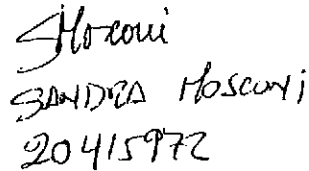 SMosconi
SANDRA MOSCONI
20415972